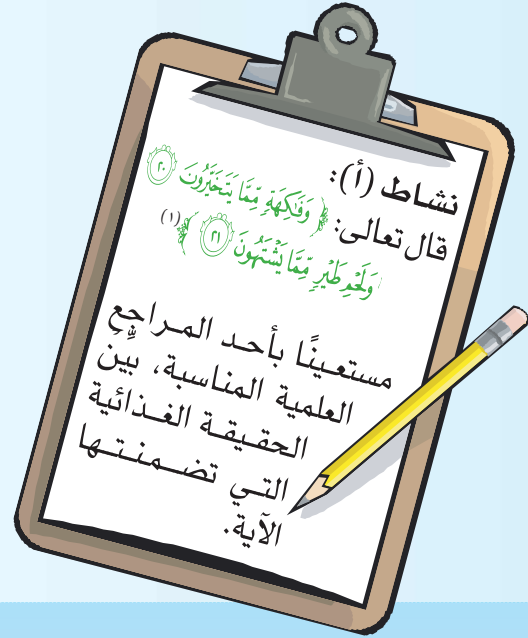 نشاط (أ):
قال تعالى: ﴿ وَفَٰكِهَةٍ مِّمَّا يَتَخَيَّرُونَ ٢٠
وَلَحْمِ طَيْرٍ مِّمَّا يَشْتَهُونَ ٢١ ﴾ (١)
مستعينًا بأحد المراجعِ
العلمية المناسبة، بيِّن
الحقيقة الغذائية
التي تضمنتها
الآية.